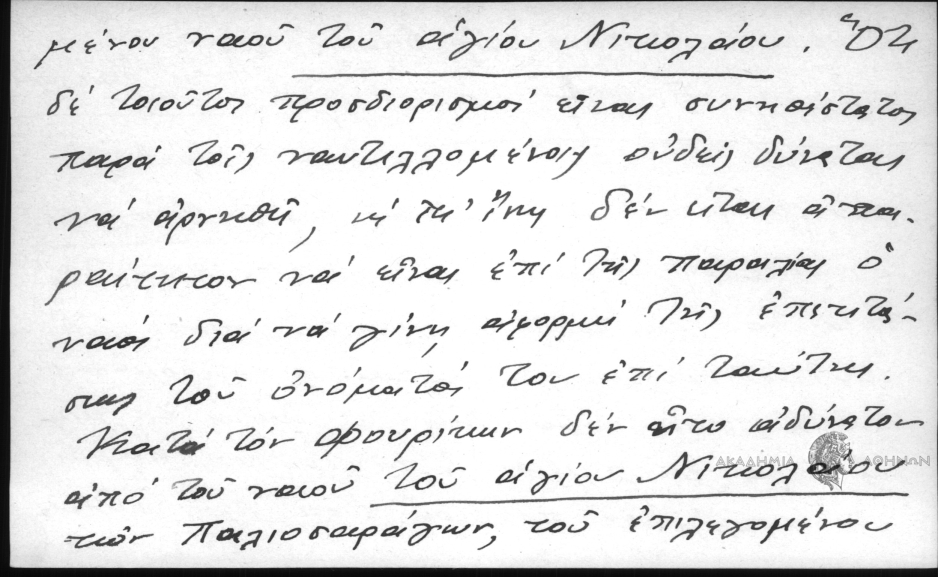 μένου ναοῦ τοῦ ἁγίου Νικολάου. Ὅτι
δέ τοιοῦτοι προσδιορισμοί εἶναι συνηθέστατοι
παρά τοῖς ναυτιλλομένοις οὐδείς δύναται
νά ἀρνηθῇ, δέν εἶναι ἀπα-
ραίτητον νά εἶναι ἐπί τῆς παραλίας ὁ
ναός διά νά γίνῃ ἀφορμή τῆς ἐπεκτά-
σεως τοῦ ὀνόματός του ἐπί ταύτης.
Κατά τόν Φουρίκην δέν εἶναι ἀδύνατον
ΑΚΑΔΗΜΙΑ ΑΘΗΝΩΝ
ἀπό τοῦ ναοῦ τοῦ ἁγίου Νικολάου
τῶν Παλιοσαράγων, τοῦ ἐπιλεγομένου